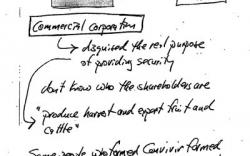 Commercial corporation
disguised the real purpose
of providing security
don't know who the shareholders are
"produce harvest and export fruit and
cattle"
Some people who formed Convivir formed